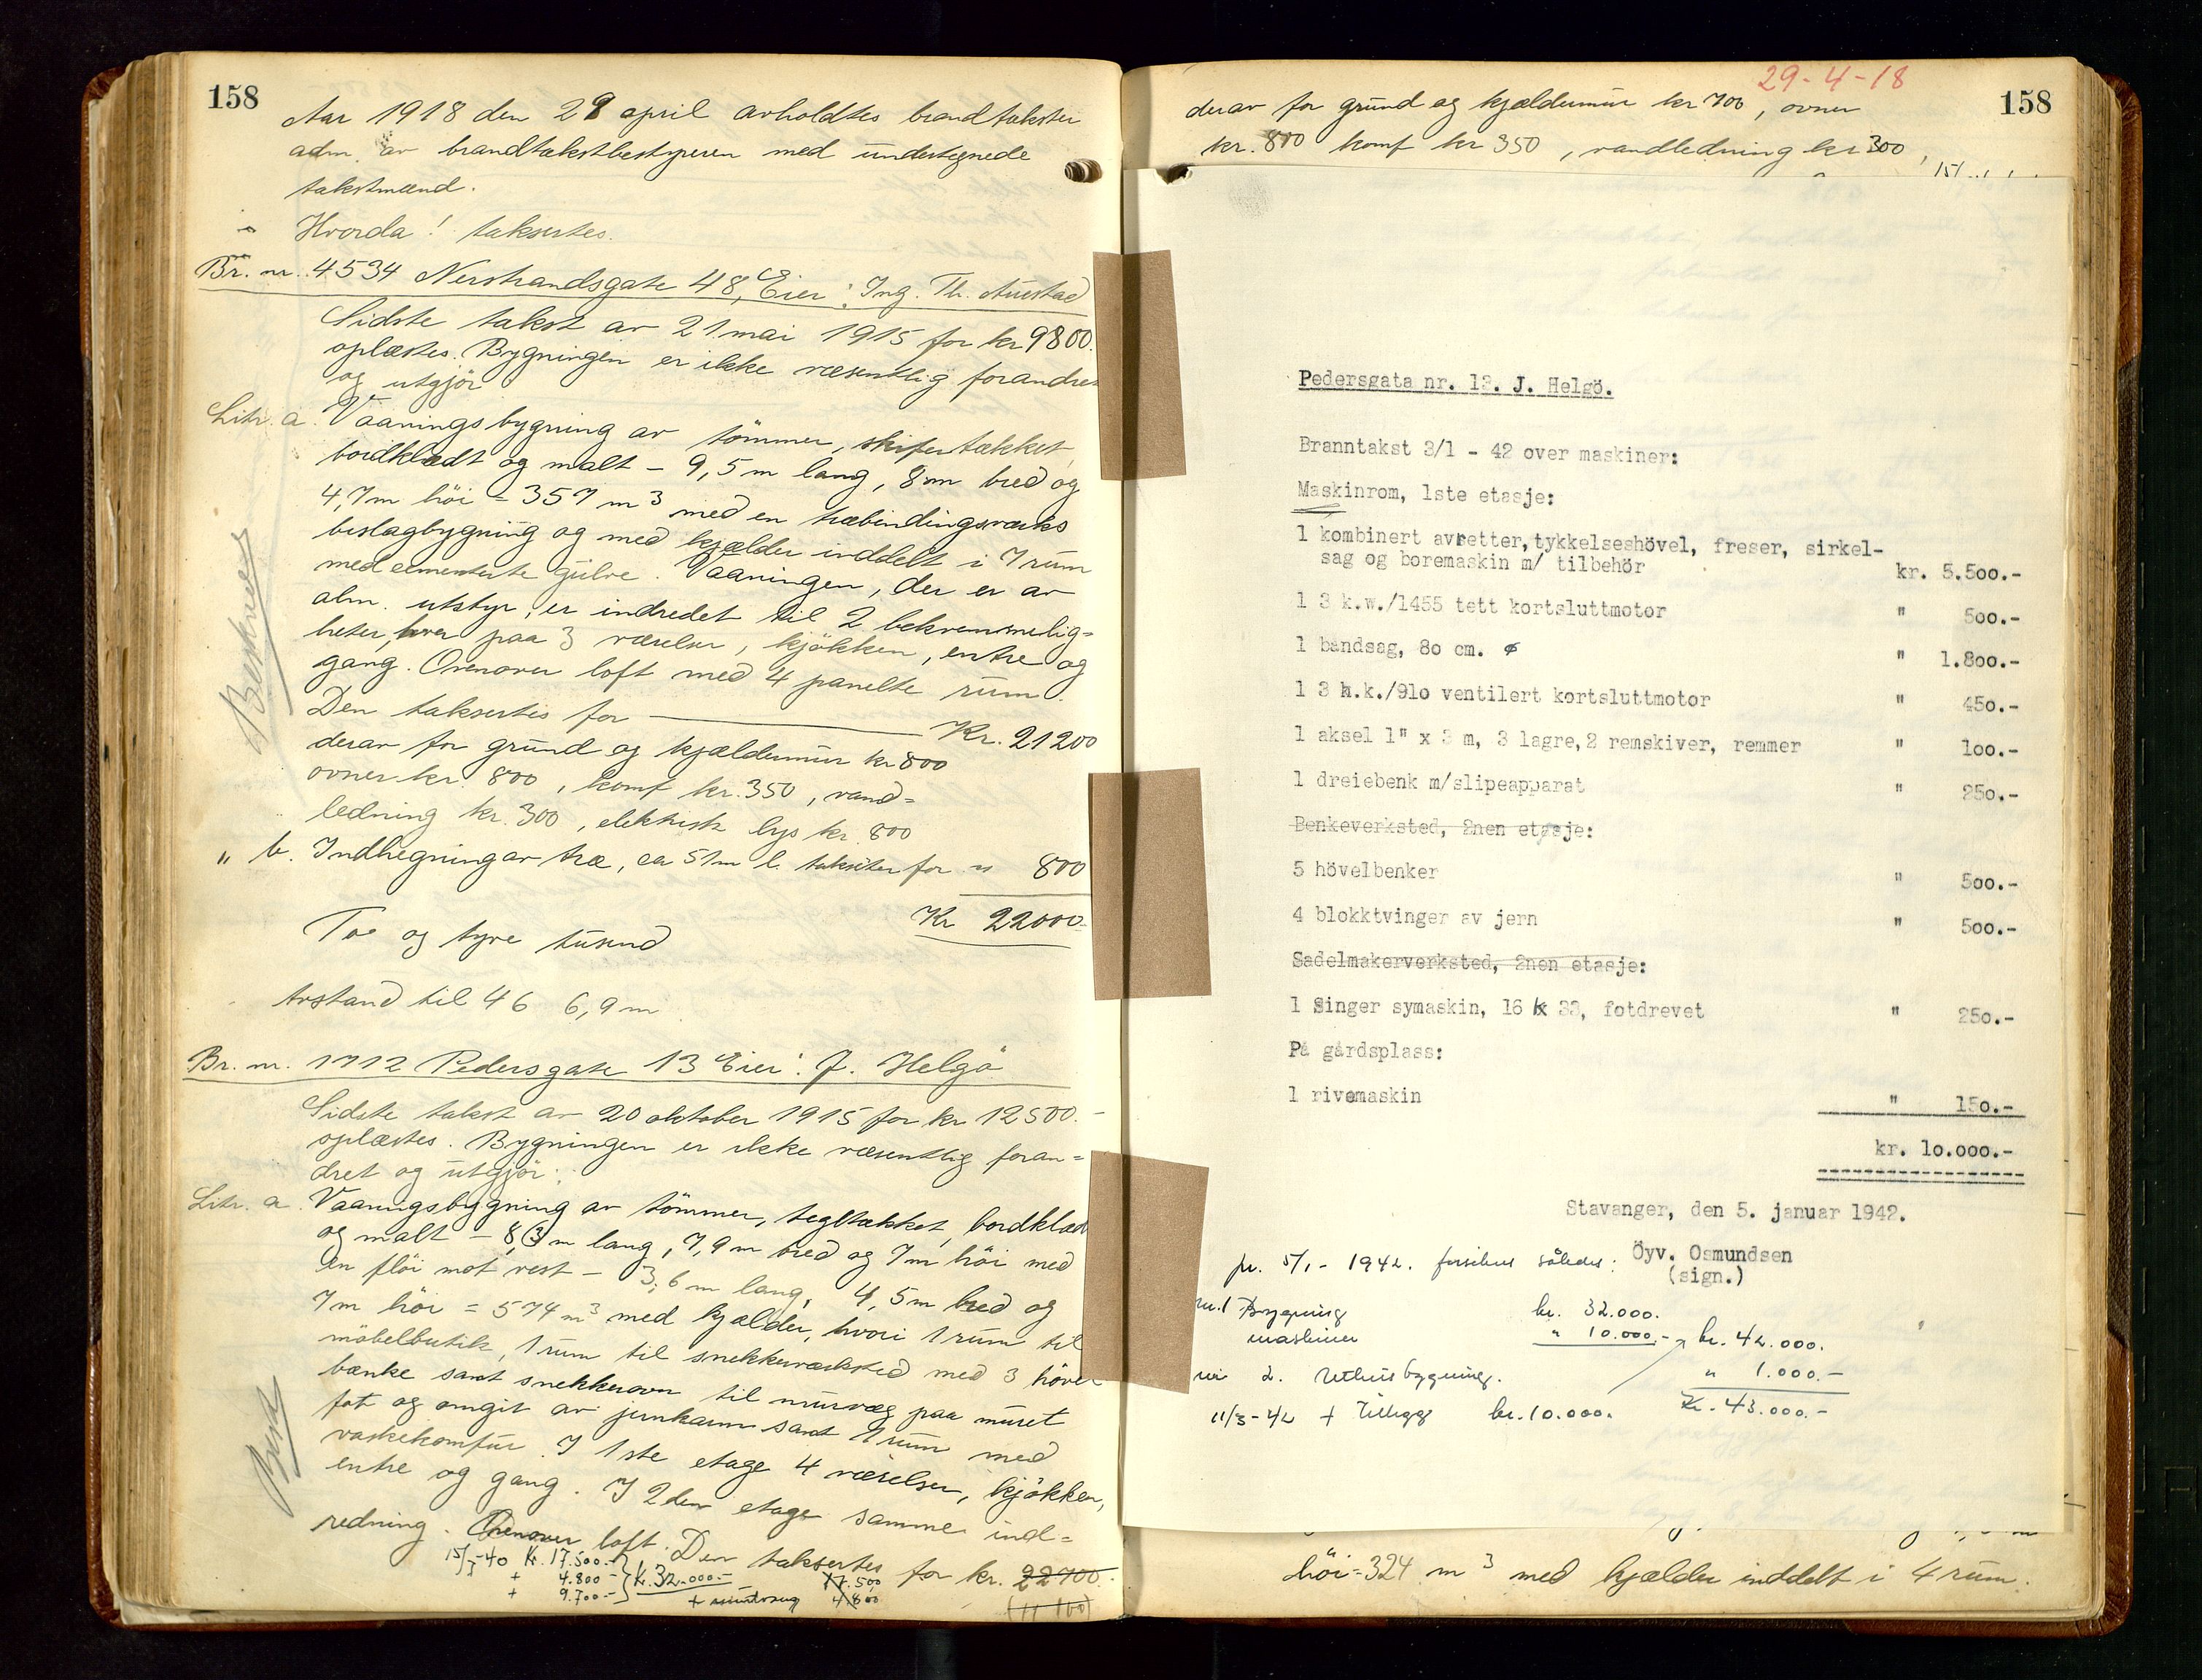 158
Aar 1918 den 29 april avholdtes brandtakster
adm. av brandtakstbestyreren med undertegnede
takstmænd.
Hvorda! taksertes.
Br. nr. 4534 Nerstrandsgate 48, Eier: Ing. Th. Austad
Sidste takst av 21 mai 1915 for kr 9800.
oplæstes. Bygningen er ikke væsentlig forandret
og utgjör
Litr. a. Vaaningsbygning av tömmer, skifertækket,
bordklædt og malt – 9,5 m lang, 8 m bred og
4,7 m höi = 357 m3 med en træbindingsverks
beslagbygning og med kjælder inddelt i 7 rum
med cementerte gulve. Vaaningen, der er av
alm. utstyr, er indredet til 2 bekvemmelig=
heter, hver paa 3 værelser, kjökken, entre og
gang. Ovenover loft med 4 panelte rum.
Den taksertes for Kr. 21200
derav for grund og kjældermur kr 800
ovner kr. 800, komf kr. 350, vand=
ledning kr. 300, elektrisk lys kr. 800
" b. Indhegning av træ, ca 51m l. taksertes for " 800
Kr 22000
To og tyve tusend
Avstand til 46 6,9 m
Beskreven
Br. nr. 1712 Pedersgate 13 Eier: J. Helgö
Sidste takst av 20 oktober 1915 for kr 12500.-
oplæstes. Bygningen er ikke væsentlig foran=
dret og utgjör:
Litr. a. Vaaningsbygning av tömmer, tegltækket, bordklædt
og malt – 8,3 m lang, 7,9 m bred og 7m höi med
en flöi mot vest – 3,6 m lang, 4,5 m bred og
7m höi = 574 m3 med kjælder, hvori 1 rum til
möbelbutik, 1 rum til snekkerværksted med 3 hövel
bænke samt snekkerovn til murvæg paa muret
fot og omgit av jernkarm samt 1 rum med
vaskekomfur. I 1ste etage 4 værelser, kjökken,
entre og gang. I 2den etage samme ind=
redning. Ovenover loft. Den taksertes for kr. 22700.
Besk
15/7-40 Kr. 17.500.- } Kr. 32.000.- 17.500
+ 4.800 – 4.800
+ 9.700.-
(11 100)
29-4-18
158
derav for grund og kjældermur kr 700, ovner
kr. 800 komf kr 350, vandledning kr 300,
Pedersgata nr. 13. J. Helgö.
Branntakst 3/1 - 42 over maskiner:
Maskinrom, 1ste etasje:
1 kombinert avretter, tykkelseshövel, freser, sirkel-
sag og boremaskin m/ tilbehör kr. 5.500.-
1 3 k.w./1455 tett kortsluttmotor " 500.-
1 båndsag, 80 cm. ø " 1.800.-
1 3 h.k./910 ventilert kortsluttmotor " 450.-
1 aksel 1" x 3 m, 3 lagre, 2 remskiver, remmer " 100.-
1 dreiebenk m/slipeapparat " 250.-
Benkeverksted, 2nen etasje:
5 hövelbenker " 500.-
4 blokktvinger av jern " 500.-
Sadelmakerverksted, 2nen etasje:
1 Singer symaskin, 16 k 33, fotdrevet " 250.-
På gårdsplass:
1 rivemaskin " 150.-
kr. 10.000.-
Stavanger, den 5. januar 1942.
Öyv. Osmundsen
(sign.)
pr. 5/1 - 1942. forsikres således:
nr. 1 Bygning kr. 32.000.
maskiner " 10.000.- kr. 42.000.
nr 2. Uthusbygning. " 1.000.-
Kr. 43.000.-
11/3-42 + Tillegg kr. 10.000.
höi = 324 m3 med kjælder inddelt i 4 rum.